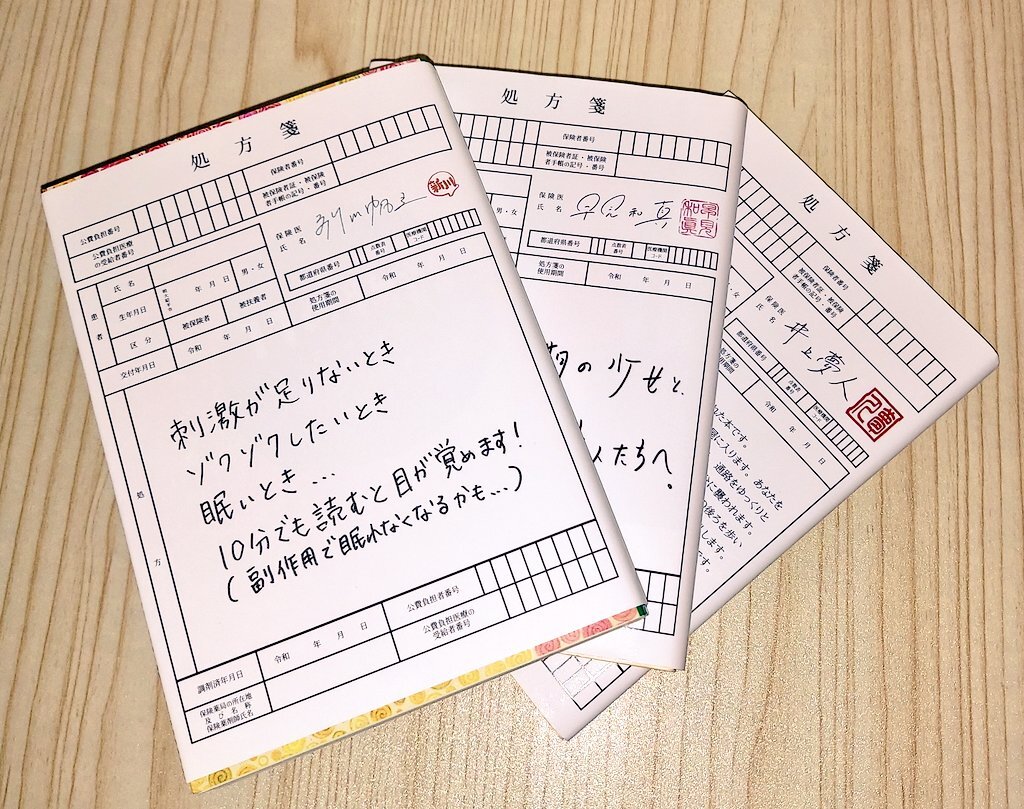 処方箋
公費負担番号
保険者番号
公費負担医療
の受給者番号
被保険者証・被保険
者手帳の記号・番号
患者
氏名
生年月日
年 月 日
男・女
区分
被保険者
被扶養者
交付年月日
令和 年 月 日
保険医
氏名
新川帆立
都道府県番号
点数表
番号
医療機関
コード
処方箋の
使用期間
令和 年 月 日
処方
刺激が足りないとき
ゾクゾクしたいとき
眠いとき…
10分でも読むと目が覚めます!
(副作用で眠れなくなるかも…)
調剤済年月日
令和 年 月 日
公費負担者番号
保険薬局の所在地
及び名称
保険薬剤師氏名
公費負担医療の
受給者番号
処方箋
保険者番号
被保険者証・被保険
者手帳の記号・番号
男・女
保険医
氏名
早見和真
早見
和真
都道府県番号
点数表
番号
医療機関
コード
処方箋の
使用期間
令和 年 月 日
の少女と、
人たちへ。
処方箋
保険者番号
被保険者証・被保険
者手帳の記号・番号
男・女
保険医
氏名
井上夢人
都道府県番号
点数表
番号
医療機関
コード
処方箋の
使用期間
令和 年 月 日
た本です。
に入ります。あなたを
通路をゆっくりと
に襲われます。
後ろを歩い
します。
です。